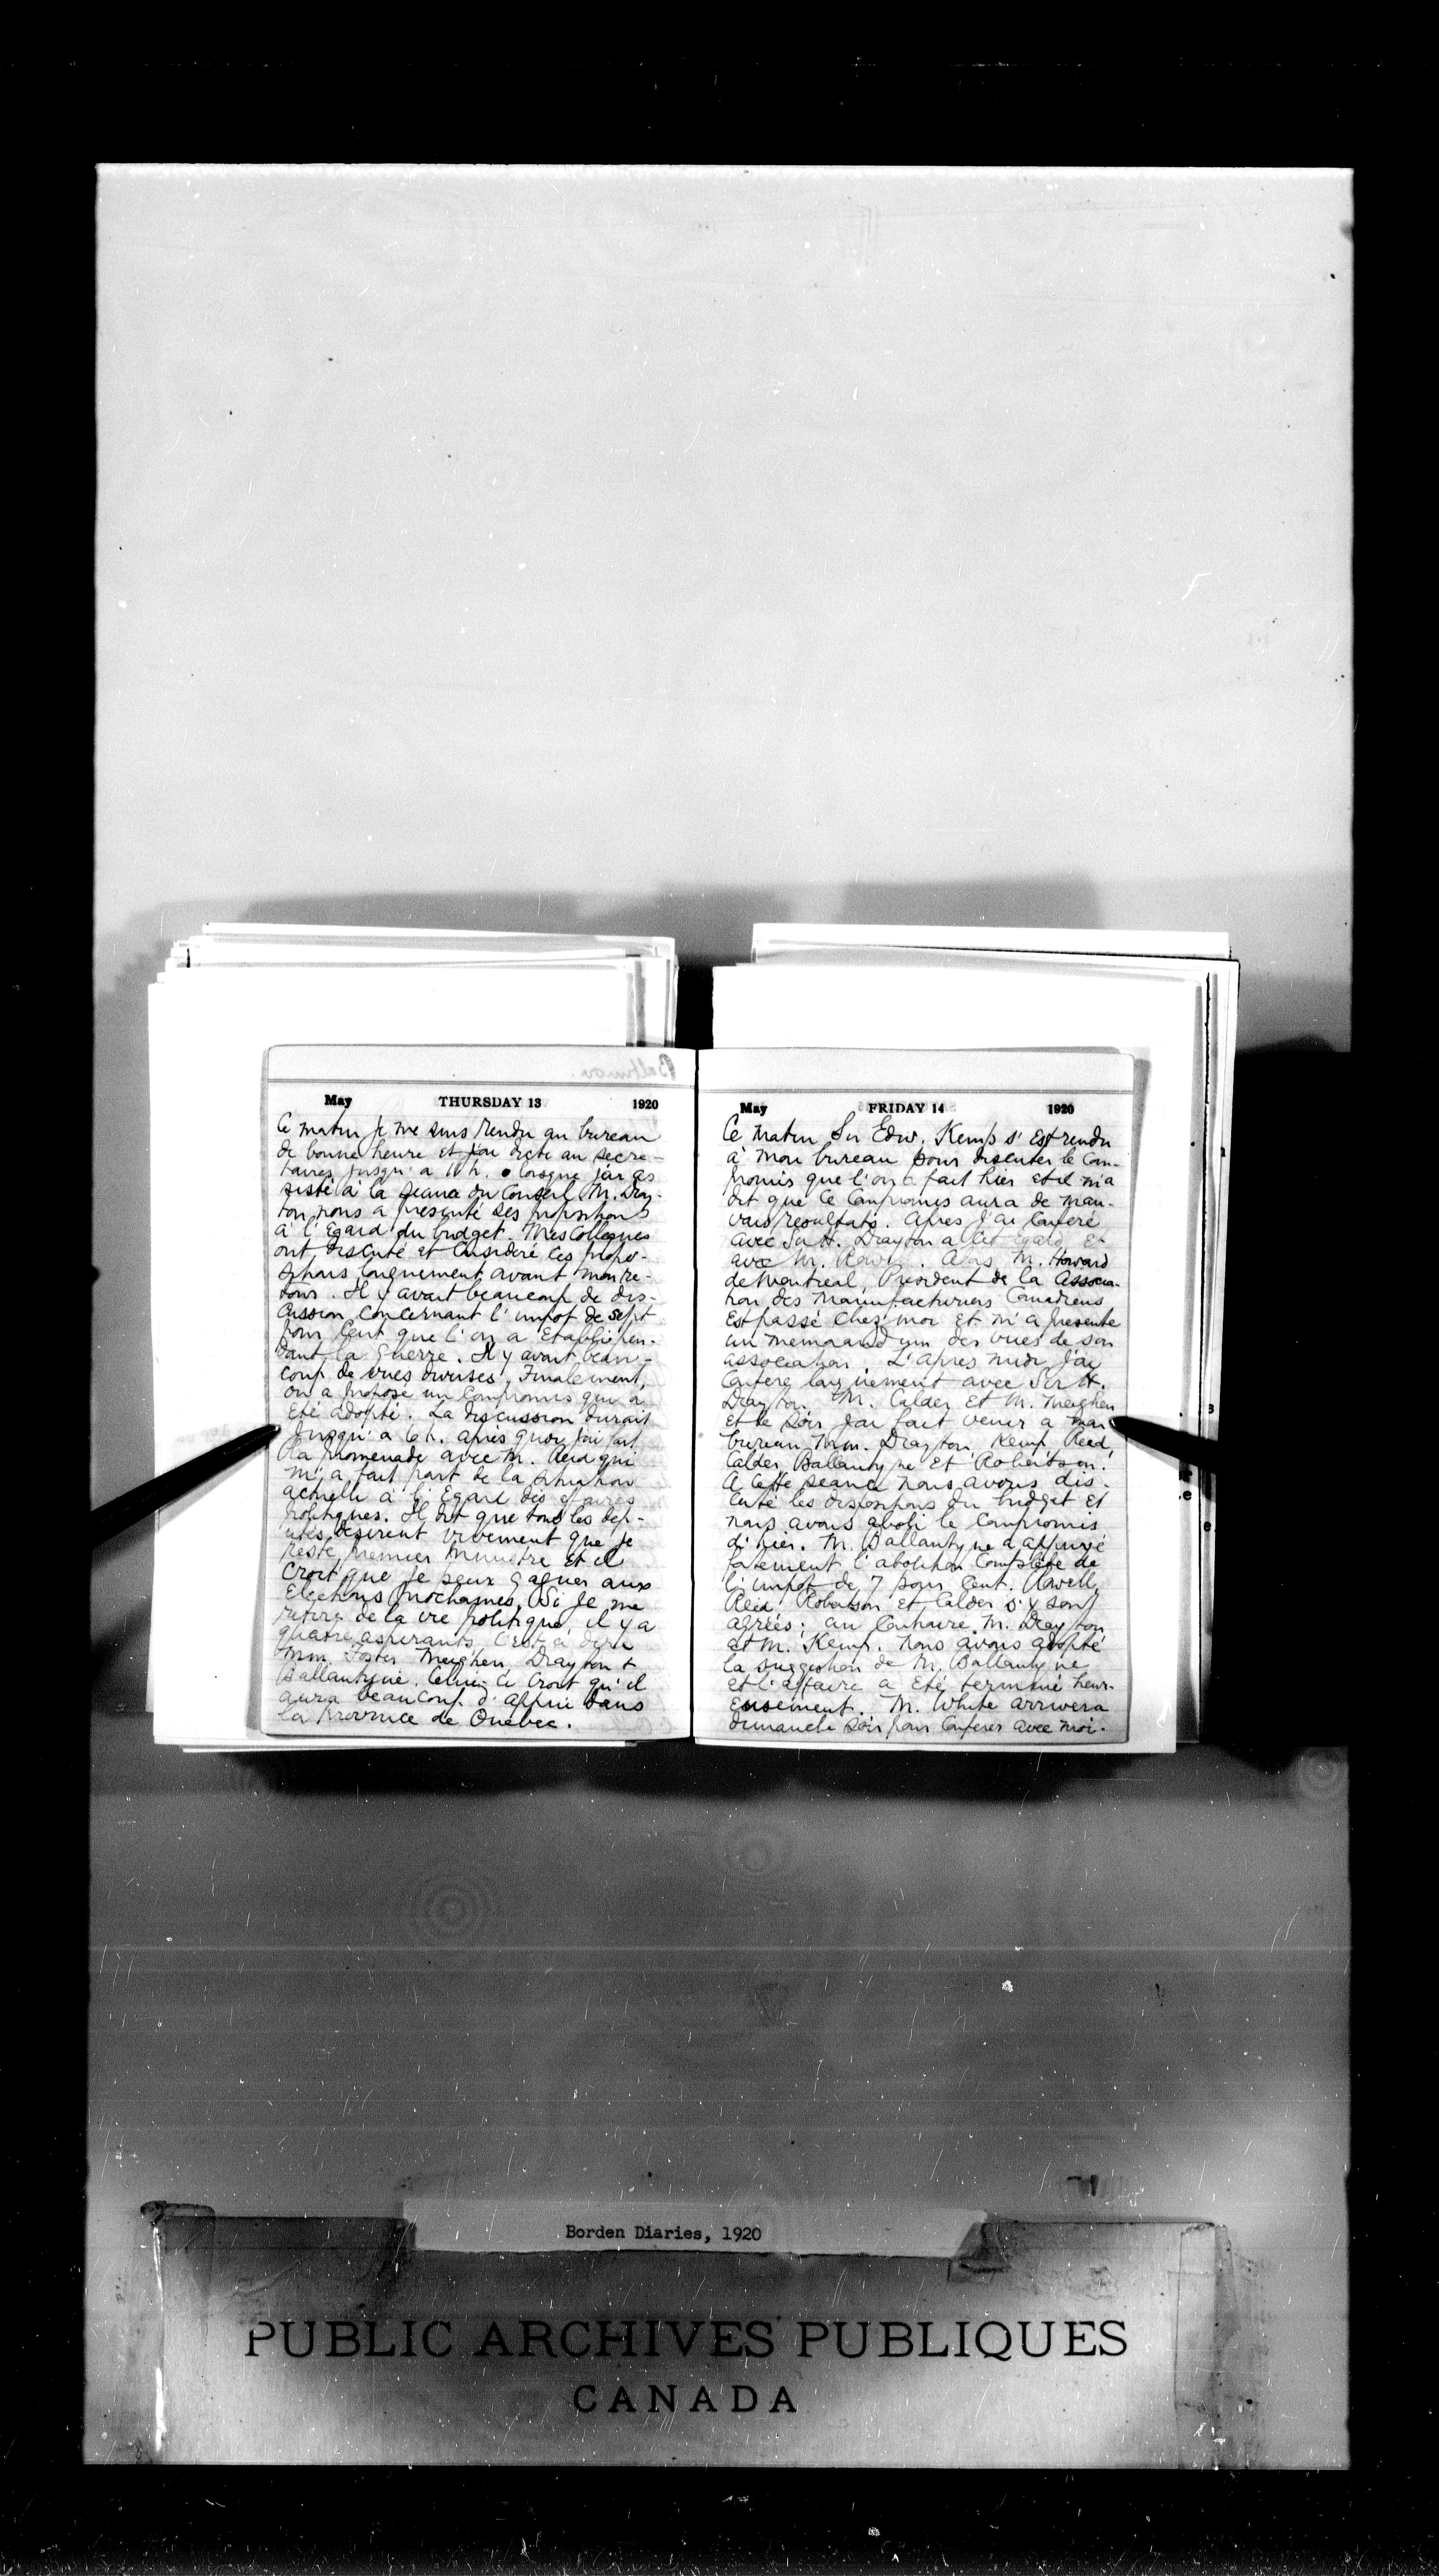 May THURSDAY 13 1920
Ce matin je me suis rendu au bureau
de bonne heure et j'ai dicté au secre-
taires jusqu'a 11 h. lorsque j'ai as
sisté à la séance du Conseil. M. Dray-
ton nous a presenté ses propositions
à l'Egard du budget. Mes Collegues
ont discuté et Consideré ces propo-
sitions longuement avant mon re-
tour. Il y avait beaucoup de dis-
cussion concernant l'impot de sept
pour Cent que l'on a Etabli pen-
dant la Guerre. Il y avait beau-
coup de vues diverses. Finalement,
on a proposé un Compromis qui a
Eté adopté. La discussion durait
jusqu'a 6 h. après quoi j'ai fait
la promenade avec M. Reid qui
m'a fait part de la situation
actuelle à l'Egard des affaires
politiques. Il dit que tous les dep-
utés desirent vivement que je
reste premier ministre et il
Croit que je peux gagner aux
Elections prochaines. Si je me
retire de la vie politique, il y a
quatre aspirants, C'est a dire
Mm. Foster Meighen Drayton &
Ballantyne. Celui-Ci Croit qu'il
aura beaucoup d'appui dans
la Province de Quebec.
May FRIDAY 14 1920
Ce matin Sir Edw. Kemp s'Est rendu
à mon bureau pour discuter le Com-
promis que l'on a fait hier et il m'a
dit que Ce Compromis aura de mau-
vais resultats. Apres j'ai Conferé
avec Sir H. Drayton a Cet Egard Et
avec M. Rowell. Alors M. Howard
de Montreal, President de la Associa-
tion des Manufacturiers Canadiens
Est passé Chez moi Et m'a presenté
un memorandum des vues de son
association. L'apres midi j'ai
Conferé longuement avec Sir H.
Drayton. M. Calder Et M. Meighen
Et le soir j'ai fait venir a mon
bureau Mm. Drayton, Kemp, Reid,
Calder Ballantyne Et Robertson.
A Cette seance nous avons dis-
cuté les dispositions du budget Et
nous avons aboli le Compromis
d'hier. M. Ballantyne a appuyé
l'abolition Complète de
l'impot de 7 pour Cent. Rowell,
Reid Robertson Et Calder s'y sont
agréés; au Contraire M. Drayton
et M. Kemp. Nous avons adopté
la suggestion de M. Ballantyne
Et l'affaire a Eté terminé heur-
eusement. M. White arrivera
dimanche soir pour Conferer avec moi.
Borden Diaries, 1920
PUBLIC ARCHIVES PUBLIQUES
CANADA